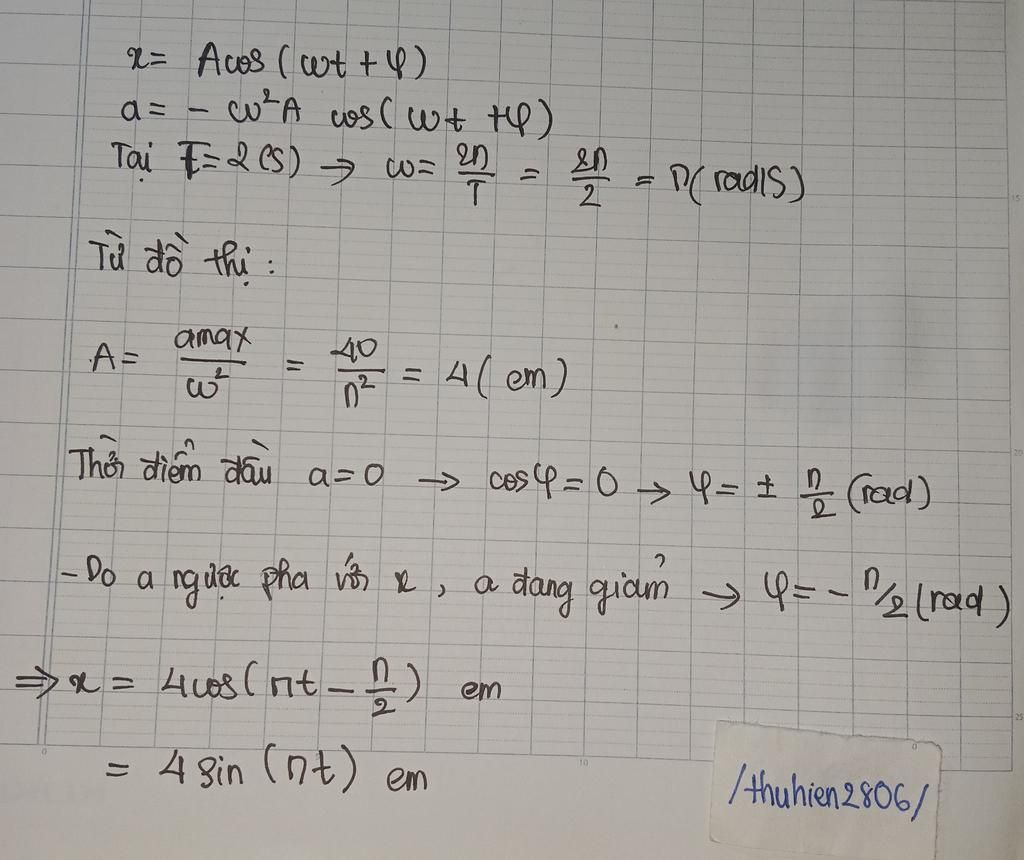 x = Acos (ωt + φ)
a = - ω²A cos( ωt + φ)
Tại T = 2 (s) → ω = 2π/T = 2π/2 = π( rad/s)
Từ đồ thị :
A = amax/ω² = 40/π² = 4 ( cm)
Thời điểm đầu a = 0 → cosφ = 0 → φ = ± π/2 (rad)
- Do a ngược pha với x , a đang giảm → φ = - π/2 (rad)
⇒ x = 4cos( πt - π/2 ) cm
= 4 sin (πt) cm
/thuhien2806/
15
20
25
0
10
0